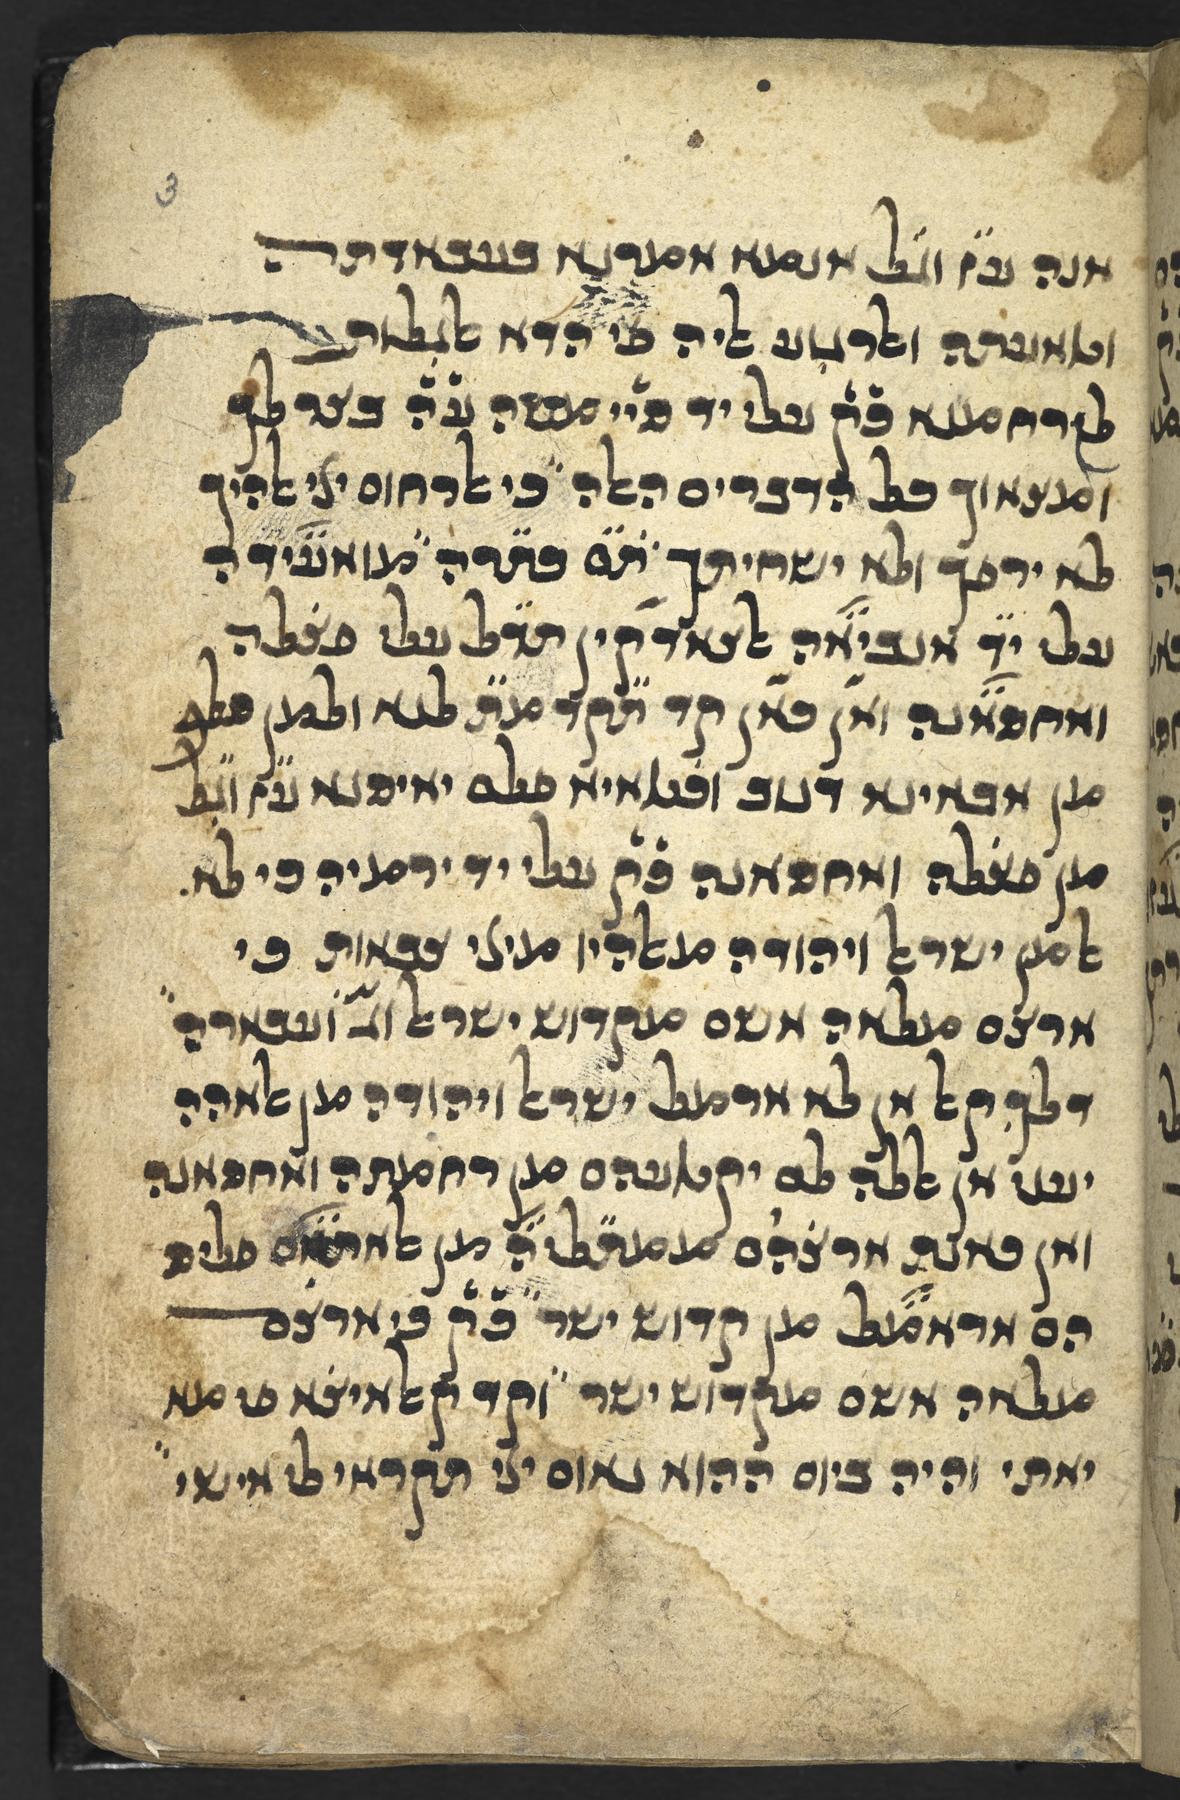 3
אנה עז̈ וגׄל אנמא אמרנא בעבאדתה
וטאעתה וארגע אליה פי הדא אלגאות
לזרחמנא כ̇ק̇ עלי יד סיי משה ע̇ה̇ בצר לך
ומצאוך כל הדברים האלה̈ כי אל רחום ייי אלהיך
לא ירפך ולא ישחיתך ת̈ם כתרה̈ מ̈ואעידה
עלי יד אנביאה אלצאדקין תדל עלי פצ̇לה
ואחסאנה ואן כאן קד תקדמת לנא ולמן סלף
מן אבאינא דנוב וכ̇טאיא פלם יאיסנא עז̈ וג̈ל
מן פצ̇לה ואחסאנה כ̇ק̇ עלי יד ירמיה כי לא.
אלמן ישראל ויהודה מאלהיו מייי צבאות כי
ארצם מלאה אשם מקדוש ישראל ועבארה̈
דלך קאל אן לא ארמל ישראל ויהודה מן אלאהה
יעני אן אללה לם יקטעהם מן רחמתה ואחסאנה
ואן כאנת ארצ̇הם ממתליה̈ מן אלאתאם פליס
הם אראמל מן קדוש ישר̈ כ̇ק̇ כי ארצם
מלאה אשם מקדוש ישר̈ וקד קאל איצ̇א פי מא
יאתי והיה ביום ההוא נאום ייי תקראי לי אישי̈